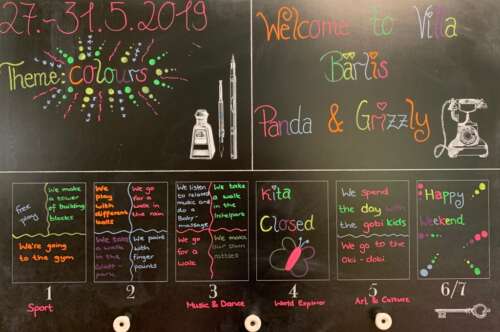 27.-31.5.2019
Theme: colours
Welcome to Villa
Bärlis
Panda & Grizzly
free
play
We make
a tower
of building
blocks
We're going
to the gym
We
play
with
different
balls
We go
for a
walk
in the
rain
We take
a walk
in the
We paint
with
finger
paints
We listen
to related
music and
do a
Baby-
massage
We take
a walk
in the
Irchelpark
We go
for a
walk
We make
our own
rattles
Kita
Closed
We spend
the day with
the gobi kids
We go to the
Oki-doki
Happy
Weekend
1
2
3
4
5
6/7
Sport
Music & Dance
World Explorer
Art & Culture